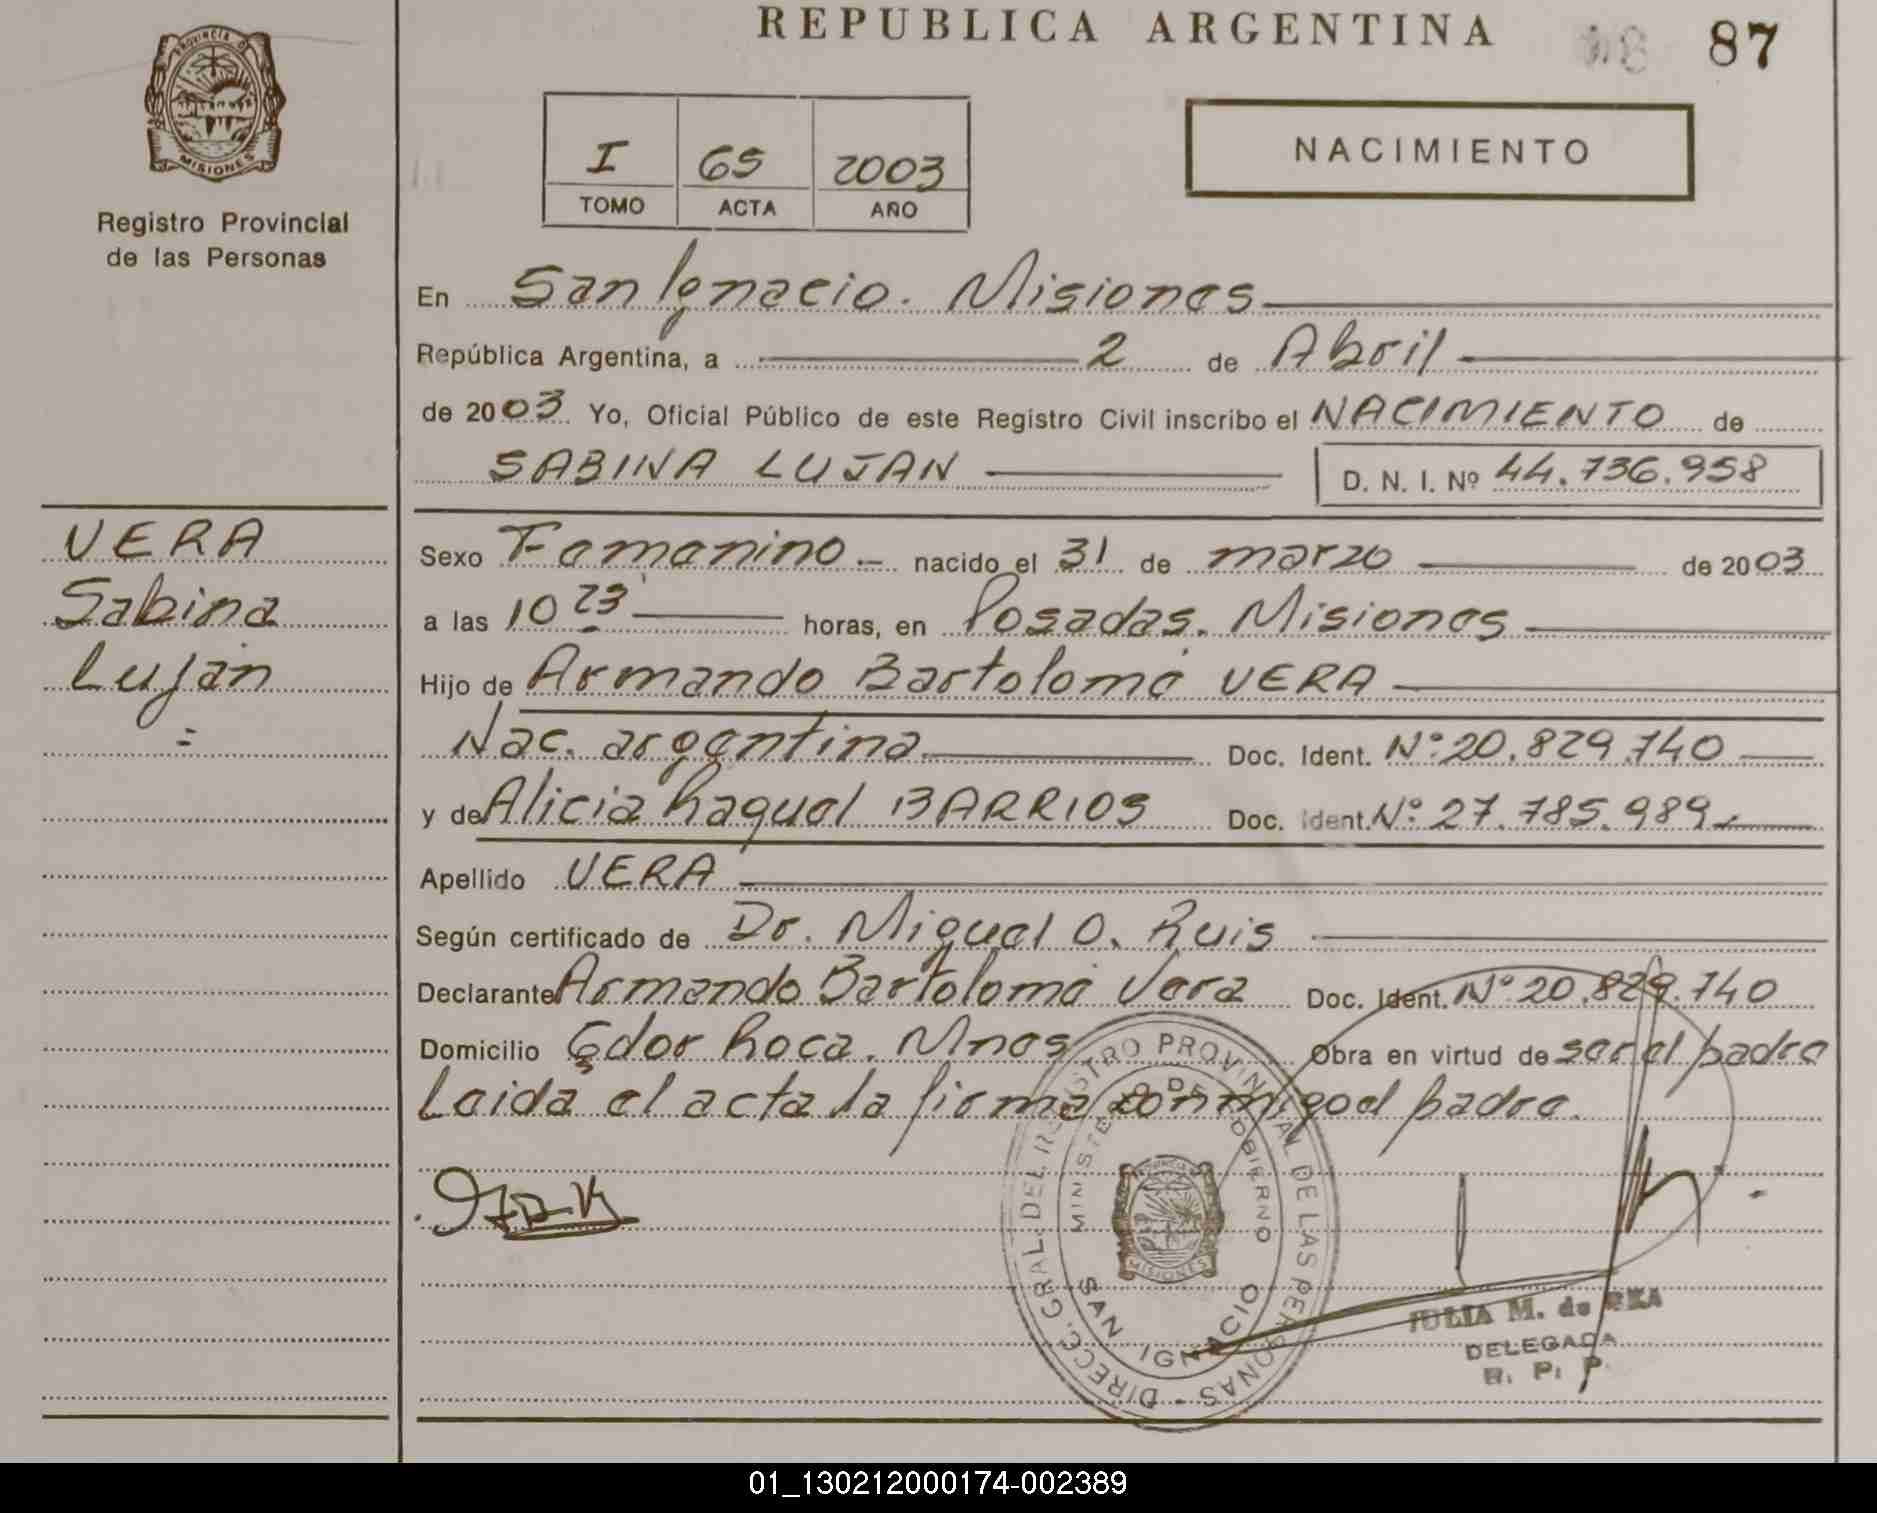 REPUBLICA ARGENTINA
87
PROVINCIA D
MISIONES
Registro Provincial
de las Personas
I 65 2003
TOMO ACTA AÑO
NACIMIENTO
En San Ignacio. Misiones
República Argentina, a 2 de Abril
de 2003 Yo, Oficial Público de este Registro Civil inscribo el NACIMIENTO de
SABINA LUJAN D. N. I. Nº 44.736.958
VERA
Sabina
Luján
Sexo Femenino nacido el 31 de marzo de 2003
a las 10 23 horas, en Posadas. Misiones
Hijo de Armando Bartolomé VERA
Nac. argentina Doc. Ident. Nº 20.829.740
y de Alicia Raquel BARRIOS Doc. Ident. Nº 27.785.989
Apellido VERA
Según certificado de Dr. Miguel O. Ruis
Declarante Armando Bartolomé Vera Doc. Ident. Nº 20.829.740
Domicilio Gdor Roca. Mnes Obra en virtud de ser el padre
Leida el acta la firma conmigo el padre.
DIRECC. GRAL. DEL REGISTRO PROVINCIAL DE LAS PERSONAS
MINISTERIO DE GOBIERNO
MISIONES
SAN IGNACIO
JULIA M. de
DELEGADA
R. P. P.
01_130212000174-002389